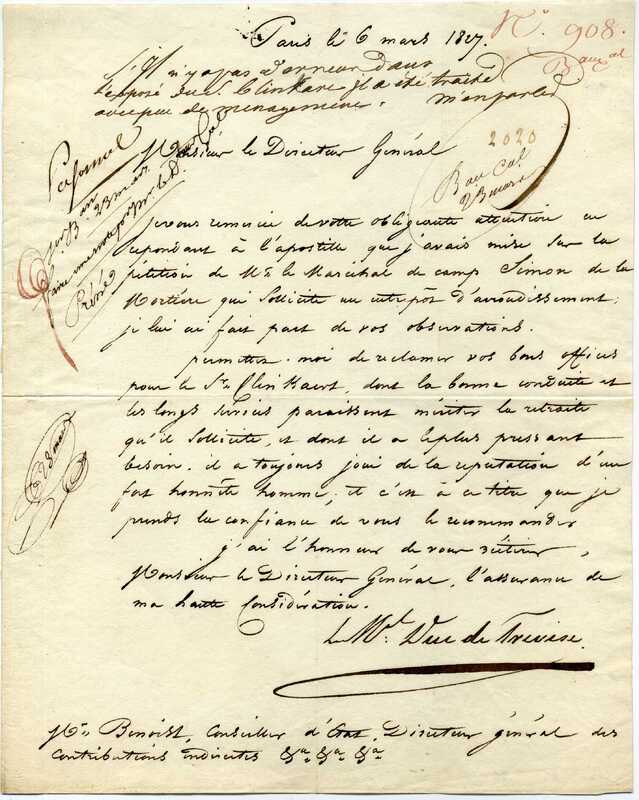 Paris le 6 mars 1827.
N° 908.
S'il n'y a pas d'erreur dans
l'exposé du S. Clinkaert il a été traité
avec peu de menagement. m'en parler
Personnel
23 mars
2020
Monsieur le Directeur Général
je vous remercie de votre obligeante attention en
repondant à l'apostille que j'avais mise sur la
pétition de Mr le Maréchal de camp Simon de la
Mortière qui sollicite un entrepôt d'arrondissement;
je lui ai fait part de vos observations.
permettez-moi de reclamer vos bons offices
pour le Sr Clinkaert, dont la bonne conduite et
les longs services paraissent mériter la retraite
qu'il sollicite, et dont il a le plus pressant
besoin. il a toujours joui de la reputation d'un
fort honnête homme; et c'est à ce titre que je
prends la confiance de vous le recommander
j'ai l'honneur de vous réitérer,
Monsieur le Directeur Général, l'assurance de
ma haute Considération.
Le Mal Duc de Trévise.
Mr Benoist, Conseiller d'Etat, Directeur général des
Contributions indirectes &a &a &a